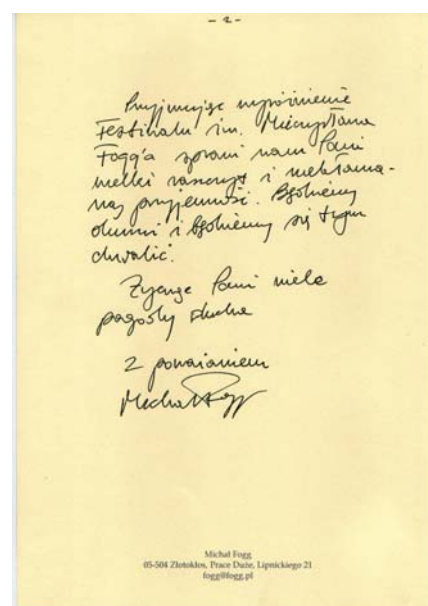 - 2 -
Przyjmując wyróżnienie
Festiwalu im. Mieczysława
Fogg'a sprawi nam Pani
wielki zaszczyt i niekłama-
ną przyjemność. Będziemy
dumni i będziemy się tym
chwalić.
Życzę Pani wiele
pogody ducha
Z poważaniem
Michał Fogg
Michał Fogg
05-504 Złotokłos, Prace Duże, Lipnickiego 21
fogg@fogg.pl